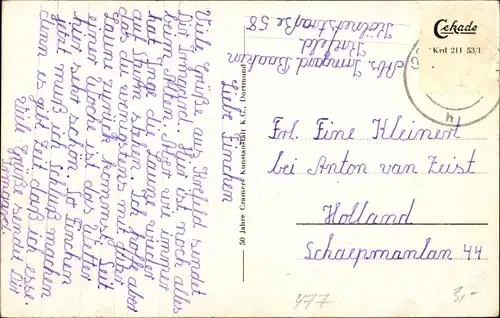 Abs. Irmgard Baaken
Krefeld
Kölnerstraße 58
Liebe Finchen
Viele Grüße aus Krefeld sendet
Dir Irmgard. Hier ist noch alles
beim Alten. Aber wie immer
hat Inge die Laune wieder
auf Sturm stehen. Ich hoffe aber
das du wenigstens mit guter
Laune zurück kommst. Seit
einer Woche ist das Wetter
hier sehr schön. So Finchen
jetzt muß ich Schluß machen
denn es ist Zeit, daß ich esse.
Viele Grüße sendet Dir
Irmgard.
50 Jahre Cramers Kunstanstalt K.G., Dortmund
Cekade
Krd 211 53/1
Frl. Fine Kleinert
bei Anton van Zeist
Holland
Schaepmanlan 44
477
3,-